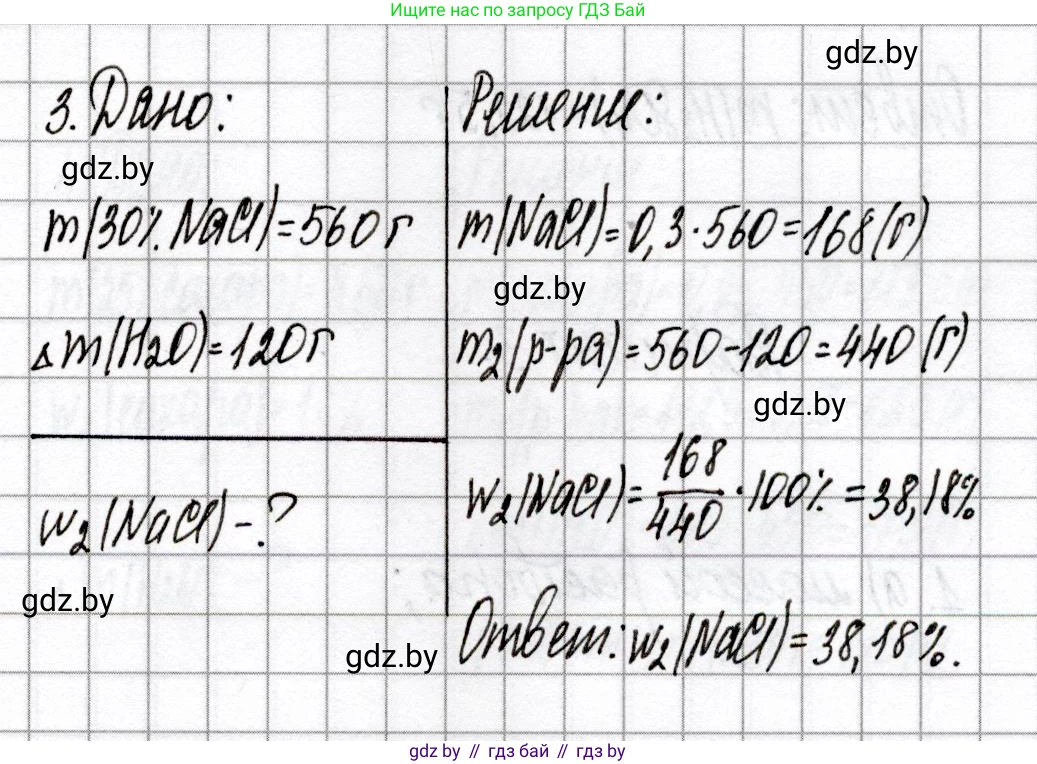 Ищите нас по запросу ГДЗ Бай
gdz.by
3. Дано:
Решение:
gdz.by
m(30% NaCl)=560 г
m(NaCl)=0,3·560=168(г)
gdz.by
△m(H₂O)=120г
m₂(р-ра)=560-120=440(г)
gdz.by
w₂(NaCl)=168/440·100%=38,18%
w₂(NaCl)-?
gdz.by
Ответ: w₂(NaCl)=38,18%.
gdz.by
gdz.by // гдз бай // гдз by